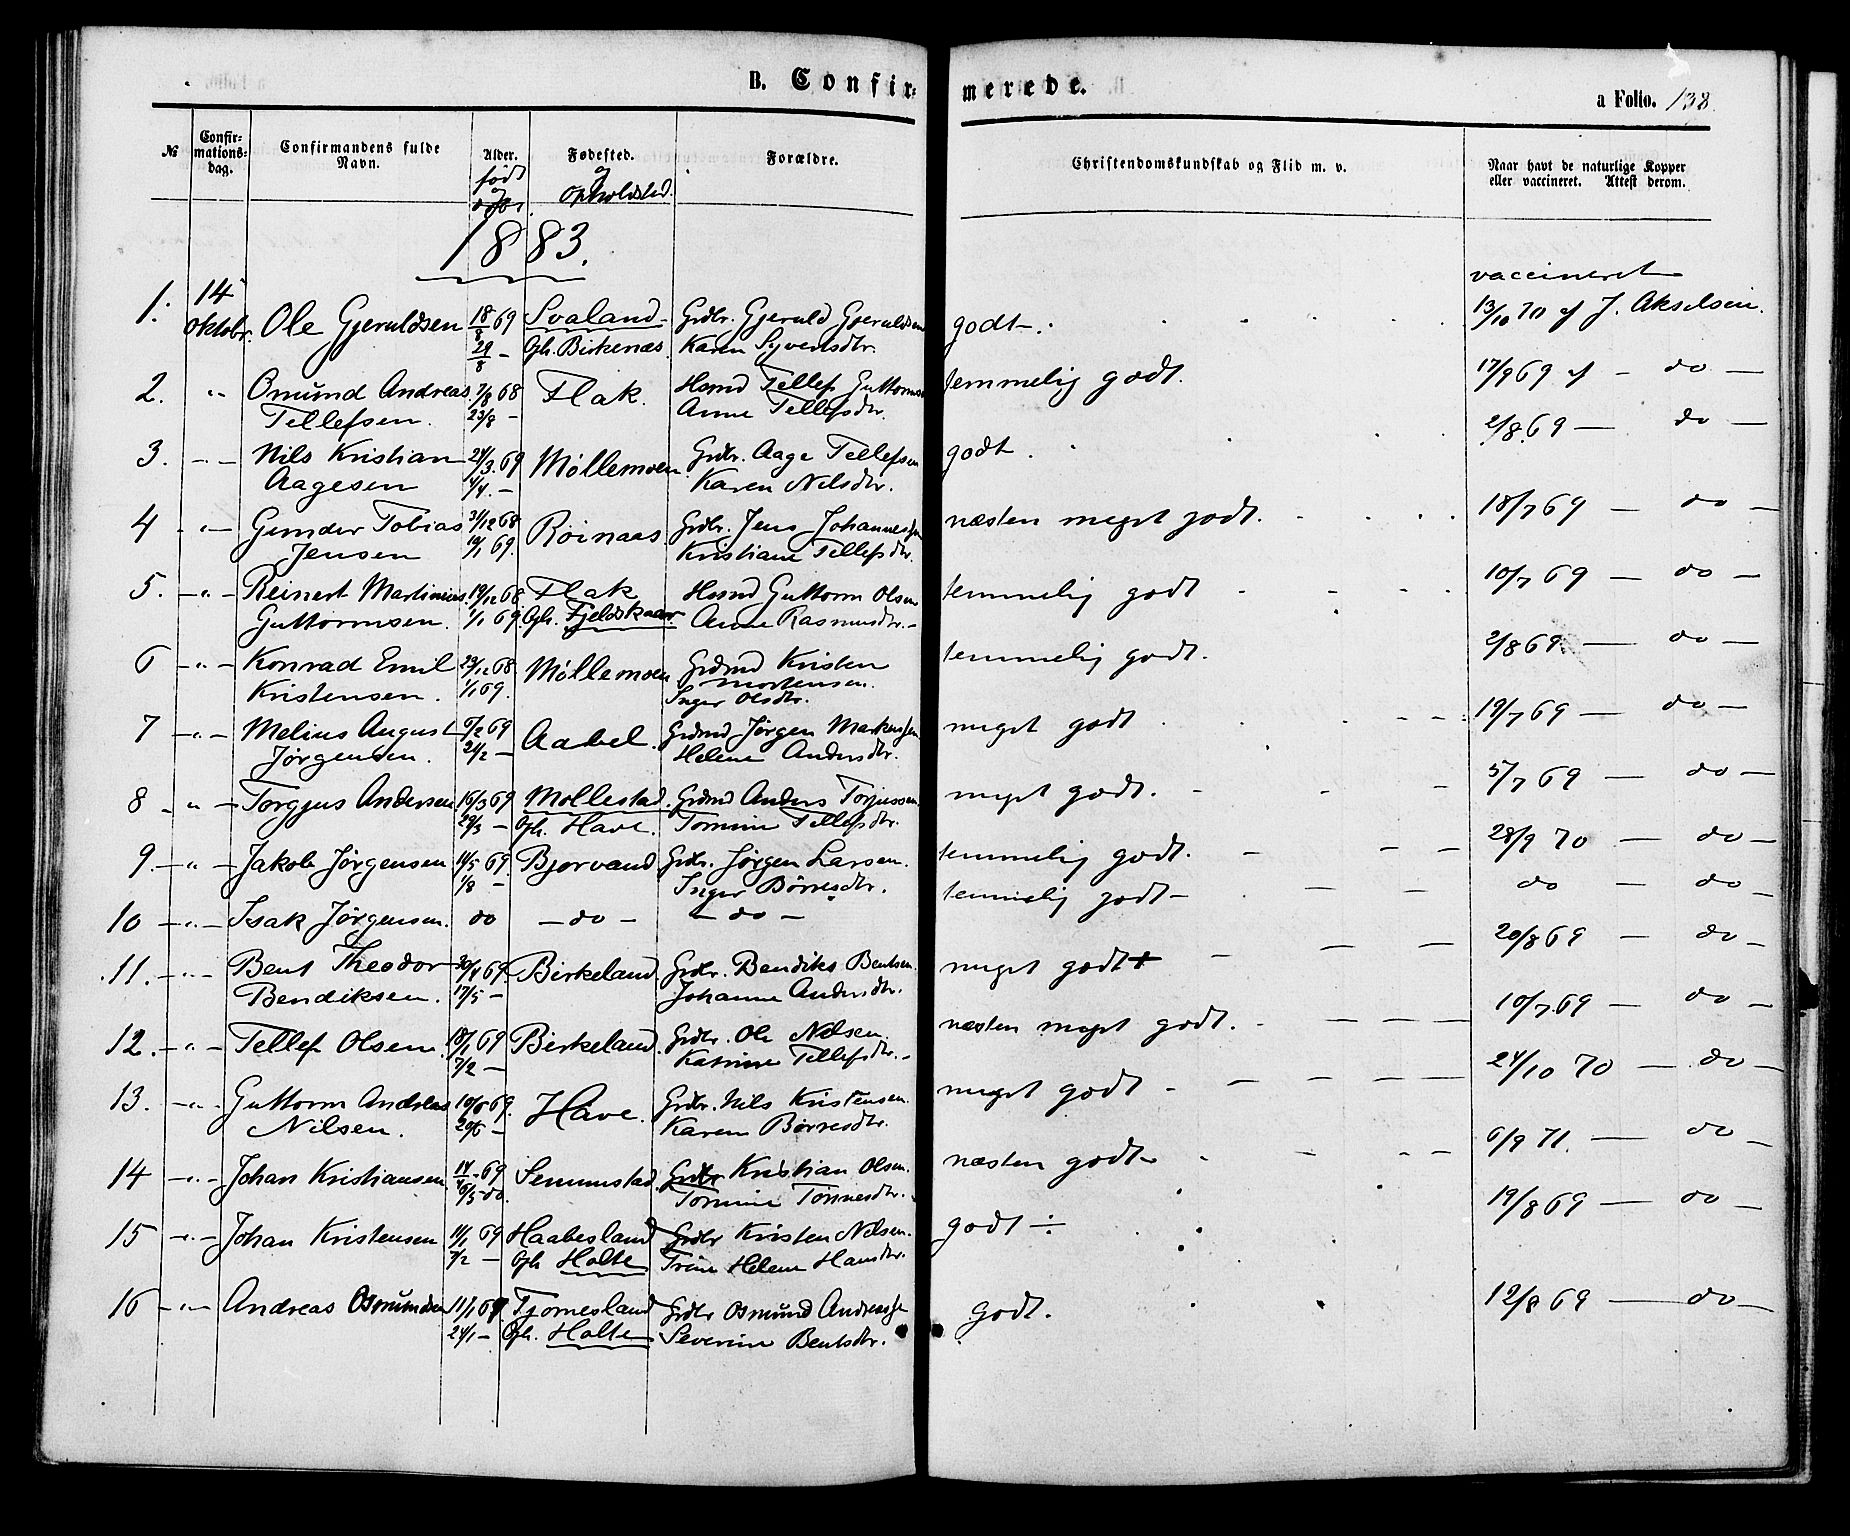 B. Confir-
merede.
a Folio. 138.
№
Confir-
mations-
dag.
Confirmandens fulde
Navn.
Alder.
født
og
Fødested.
og
opholdsted.
Forældre.
Christendomskundskab og Flid m. v.
Naar havt de naturlige Kopper
eller vaccineret. Attest derom.
1883.
vaccineret
1. 14 oktobr. Ole Gjeruldsen 18/8 69 Svaland Grdbr. Gjeruld Gjeruldsen godt 13/10 70 af J. Akselsen.
29/8 — Oph. Birkenæs Karen Syvertsdtr.
2. " Omund Andreas 7/8 68 Flak. Hsmd Tellef Guttormsen temmelig godt. 17/9 69 af — do —
Tellefsen. 23/8 — Anne Tellefsdtr.
3. — " — Nils Kristian 24/3 69 Møllemoen Grdbr. Aage Tellefsen godt. 2/8 69 — do —
Aagesen 4/4 — Karen Nilsdtr.
4 — " — Gunder Tobias 31/12 68 Røinaas Grdbr. Jens Johannessen næsten meget godt. 18/7 69 — do —
Jensen 19/1 69. Kristiane Tellefsdtr.
5. — " — Reinert Martinius 19/12 68 Flak Hsmd Guttorm Olsen temmelig godt 10/7 69 — do —
Guttormsen. 1/1 69. Oph. Fjeldskaar Anne Rasmusdtr.
6 — " — Konrad Emil 23/12 68 Møllemoen Grdmd Kristen temmelig godt. 2/8 69. — do —
Kristensen. 1/1 69. Mortensen.
Inger Olsdtr.
7 — " — Melius August 6/2 69 Aabel. Grdmd Jørgen Markussen meget godt 19/7 69 — do —
Jørgensen. 21/2 — Helene Andersdtr.
8 — " — Torgjus Andersen 16/3 69 Mollestad. Grdmd Anders Torjussen meget godt. 5/7 69 — do —
29/3 — Oph. Have. Tomine Tellefsdtr.
9. — " — Jakob Jørgensen 14/5 69 Bjorvand Grdbr. Jørgen Larsen. temmelig godt. 28/9 70 — do —
1/8 — Inger Børresdtr.
10 — " — Isak Jørgensen. do — do — — do — temmelig godt — do — do —
11. — " — Bent Theodor 30/4 69. Birkeland. Grdbr. Bendiks Bentsen. meget godt + 20/8 69 — do —
Bendiksen. 17/5 — Johanne Andersdtr.
12. — " — Tellef Olsen. 18/1 69 Birkeland. Grdbr. Ole Nilsen næsten meget godt. 10/7 69 — do —
7/2 — Katrine Tellefsdtr.
13. — " — Guttorm Andreas 10/6 69. Have. Grdbr. Nils Kristensen. meget godt 24/10 70 — do —
Nilsen. 20/6 — Karen Børresdtr.
14 — " — Johan Kristiansen 69 Senumstad. Grdbr Kristian Olsen. næsten godt 6/9 71. — do —
16/5 do. Tomine Tønnesdtr.
15 — " — Johan Kristensen 11/1 69 Haabesland Grdbr Kristen Nilsen. godt ÷ 19/8 69 — do
7/2 — Oph Holte Trine Helene Hansdtr.
16 — " — Andreas Osmundsen 11/1 69 Tjomesland Grdbr Osmund Andreassen godt. 12/8 69 — do —
24/1 — Oph. Holte Severine Bentsdtr.